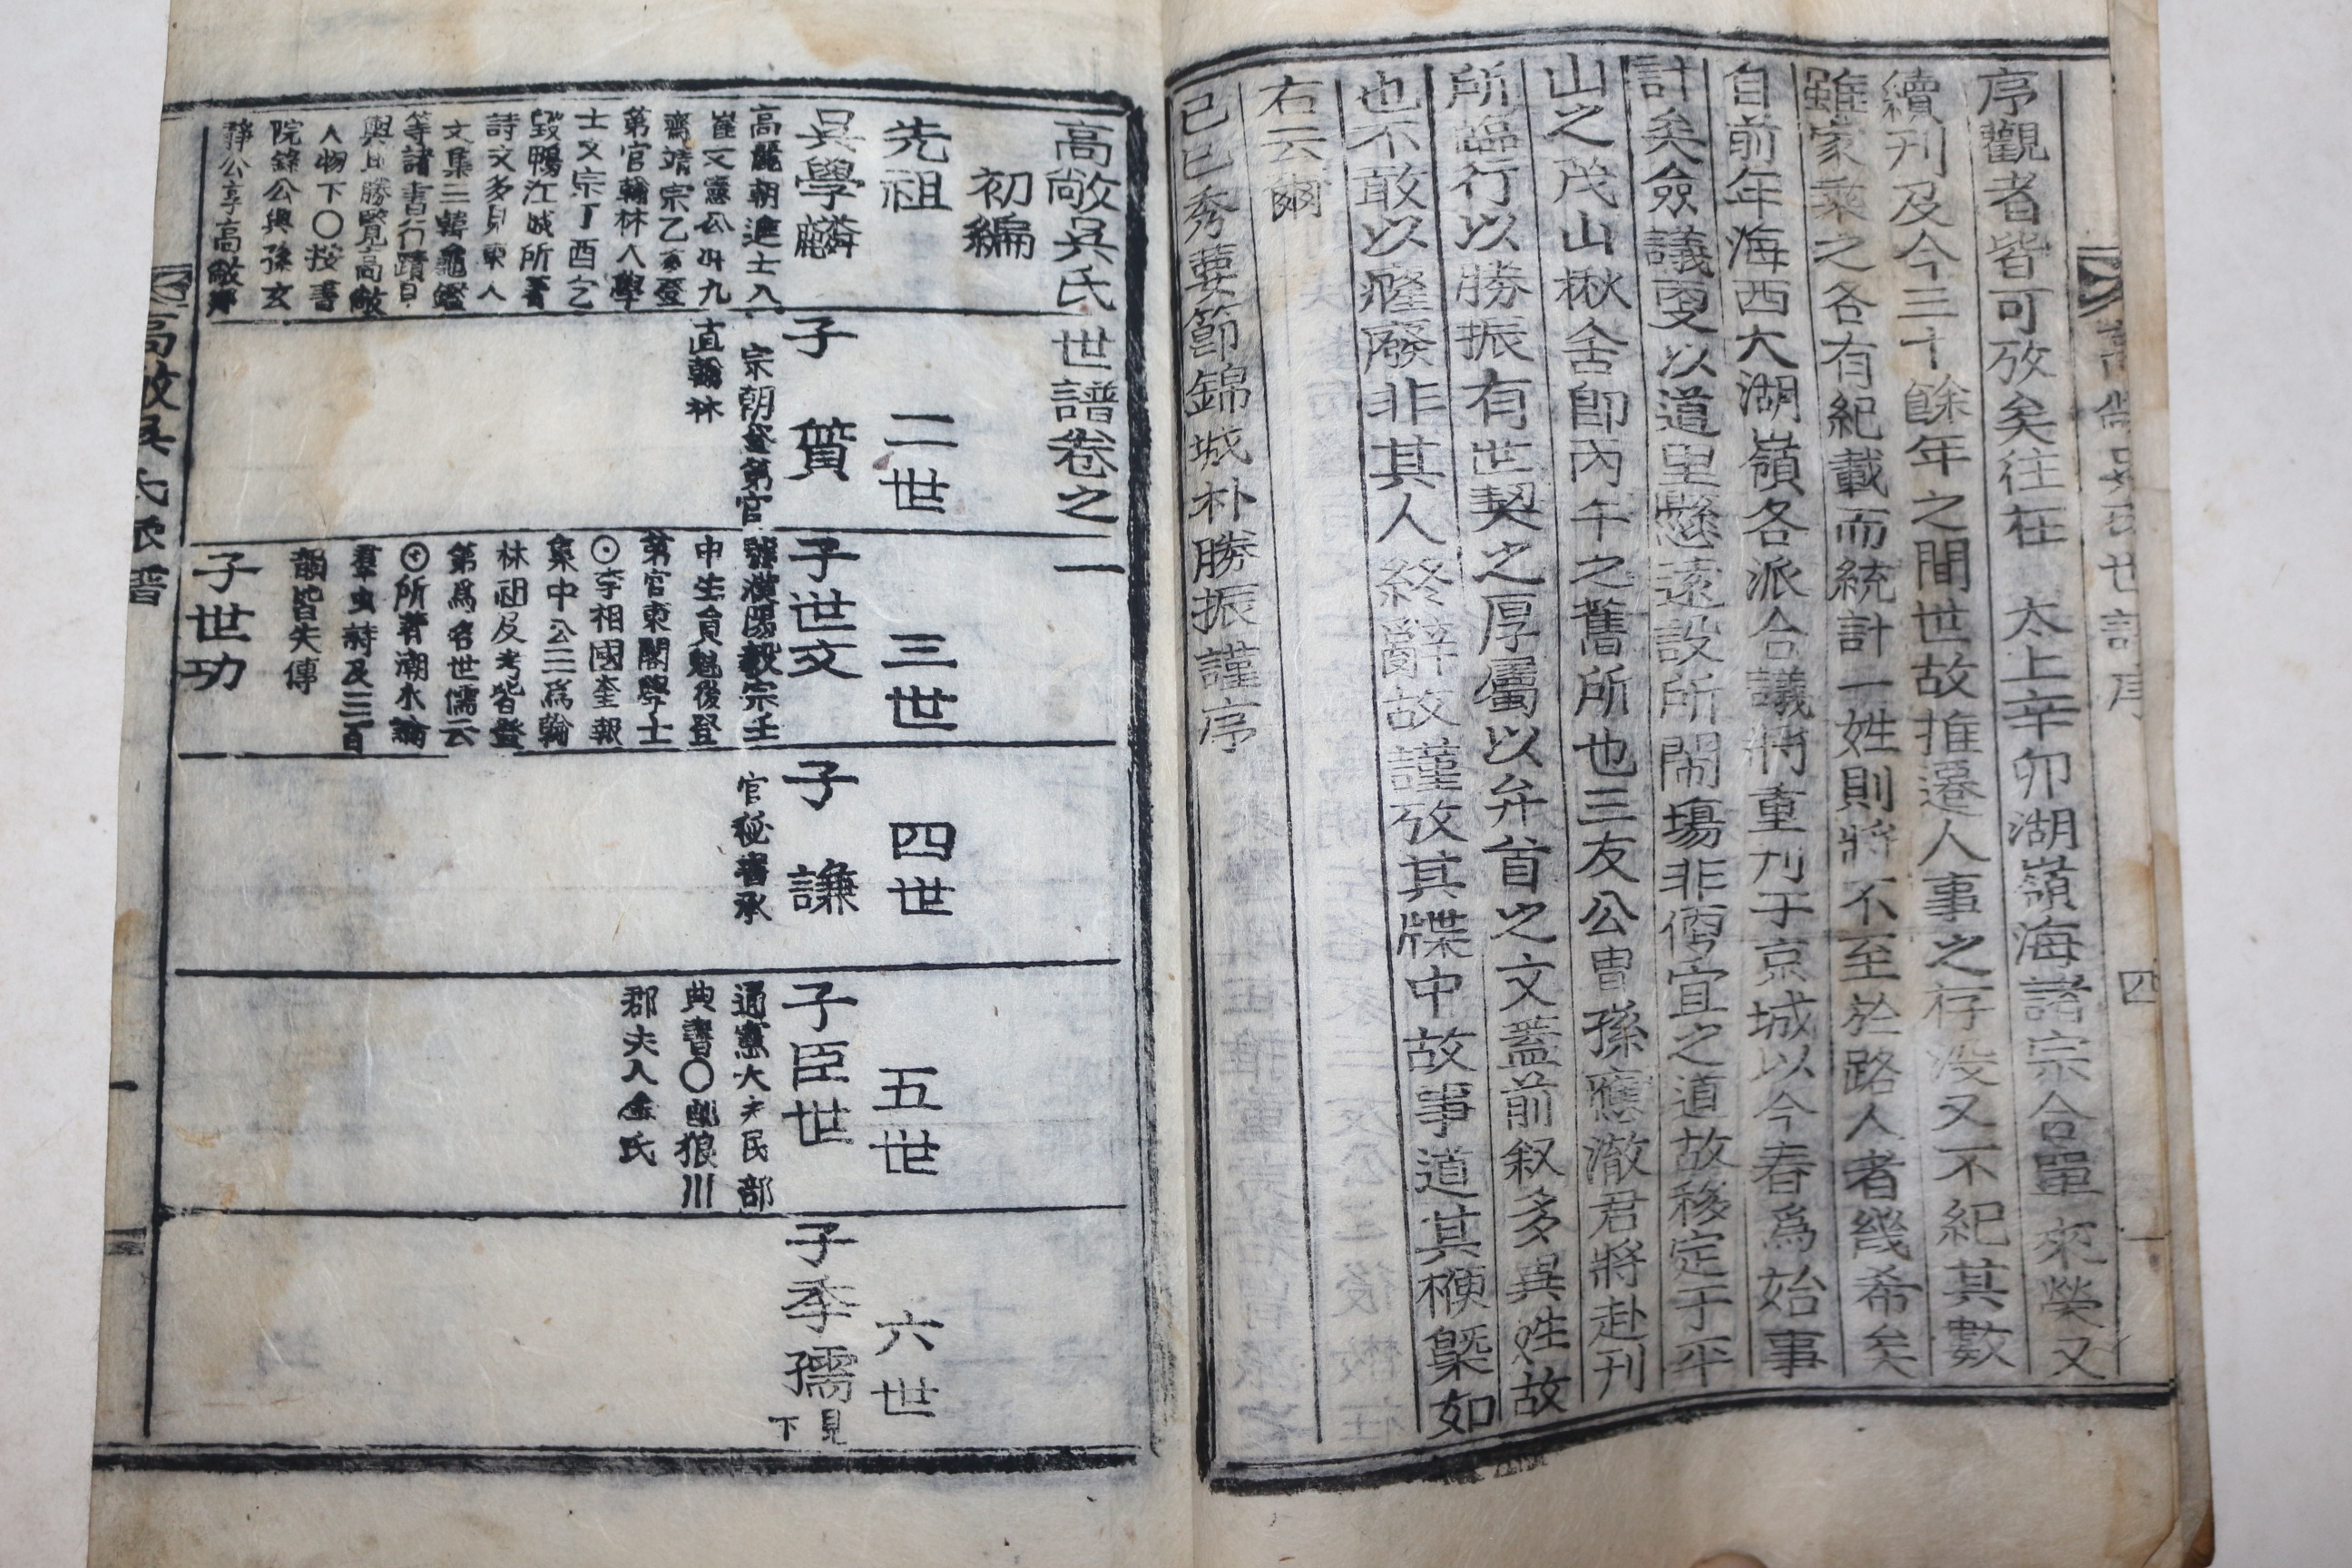 序觀者皆可攷矣往在 太上辛卯湖嶺海諸宗合單來滎又
續刊及今三十餘年之間世故推遷人事之存沒又不紀其數
雖家乘之各有紀載而統計一姓則將不至於路人者幾希矣
自前年海西大湖嶺各派合議將重刊于京城以今春爲始事
計矣僉議更以道里懸遠設所鬧場非便宜之道故移定于平
山之茂山楸舍卽丙午之舊所也三友公胄孫應澈君將赴刊
所臨行以勝振有世契之厚屬以弁首之文蓋前叙多異姓故
也不敢以癃廢非其人終辭故謹攷其牒中故事道其梗槩如
右云爾
己巳秀葽節錦城朴勝振謹序
高敞吳氏世譜卷之一
初編
先祖
吳學麟
高麗朝進士入
崔文憲公冲九
齋靖宗乙亥登
第官翰林入學
士文宗丁酉乞
毀鴨江城所著
詩文多見東人
文集三韓龜鑑
等諸書行蹟見
輿地勝覽高敞
人物下〇按書
院錄公與孫玄
靜公享高敞鄕
二世
子 質
宗朝登第官
直翰林
三世
子世文
號濮陽毅宗壬
中生員魁後登
第官東閣學士
⊙李相國奎報
集中公三爲翰
林祖及考皆登
第爲名世儒云
⊙所著潮水論
羣虫詩及三百
韻皆失傳
子世功
四世
子 謙
官秘書承
五世
子臣世
通憲大夫民部
典書〇配狼川
郡夫人金氏
六世
子季孺
見
下
高敞吳氏派譜
一